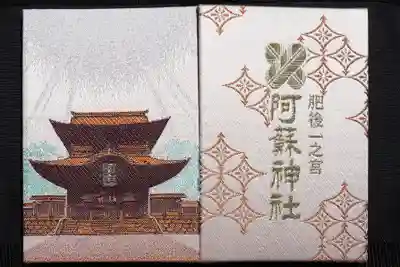 肥後一之宮
阿蘇神社